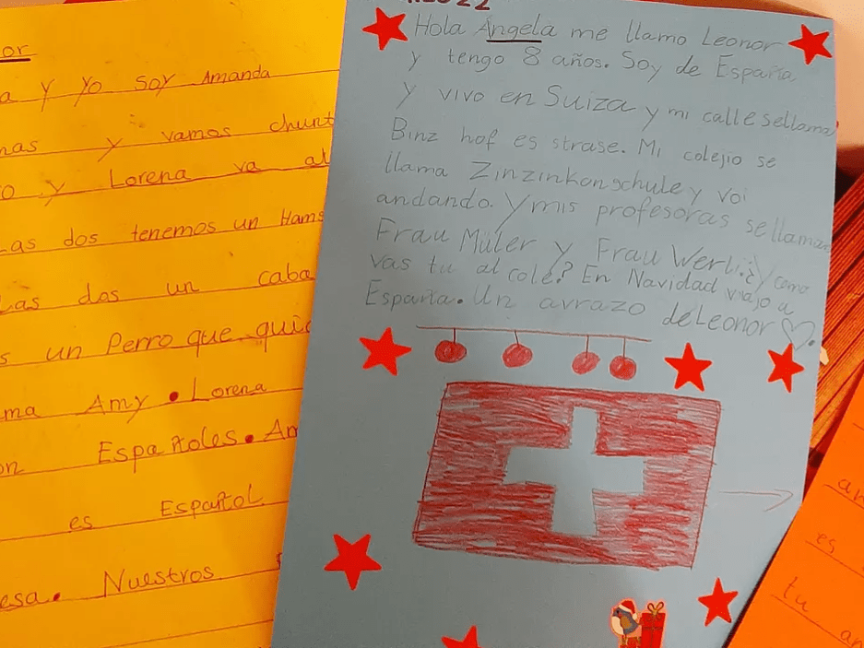 or
a y yo soy Amanda
nas y vamos chunt
o y Lorena va al
Las dos tenemos un Hams
Las dos un caba
s un Perro que quie
ma Amy. Lorena
on Españoles. Am
es Español
esa. Nuestros
22
Hola Angela me llamo Leonor
y tengo 8 años. Soy de España
y vivo en Suiza y mi calle sellama
Binz hof es strase. Mi colejio se
llama Zinzinkonschule y voi
andando. Y mis profesoras sellaman
Frau Müler y Frau Werli. ¿Y como
vas tu al cole? En Navidad viajo a
España. Un avrazo deLeonor ♡.
es
tu an